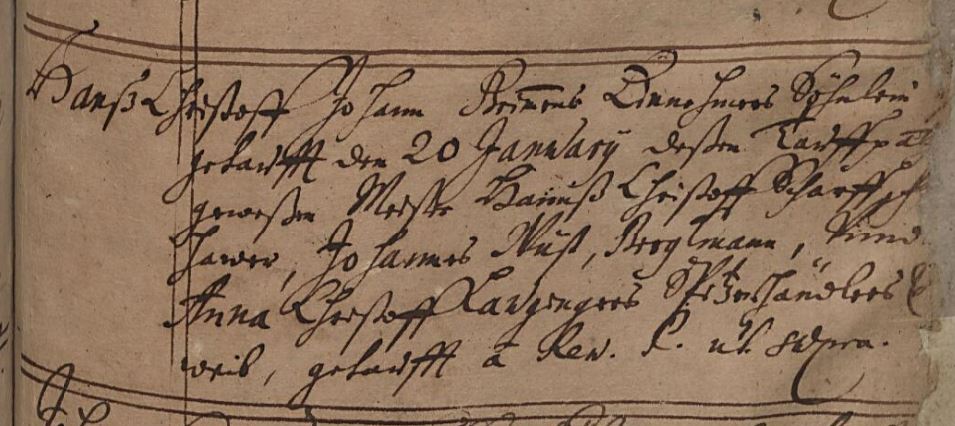 Hanß Christoff Johann Einnehmers Söhnlein
getaufft den 20 January deßen Tauffpat
geweßen Meister Hannß Christoff Scharff
hawer, Johannes Wüst, Bergkmann, Vnnd
Anna Christoff Spitzenhändlers
weib, getaufft à Rev. P. ut supra.